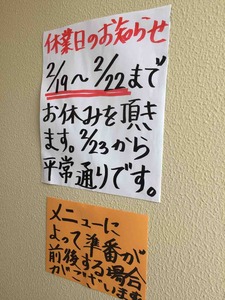 休業日のお知らせ
2/19～2/22まで
お休みを頂き
ます。2/23から
平常通りです。
メニューに
よって準番が
前後する場合
がございます